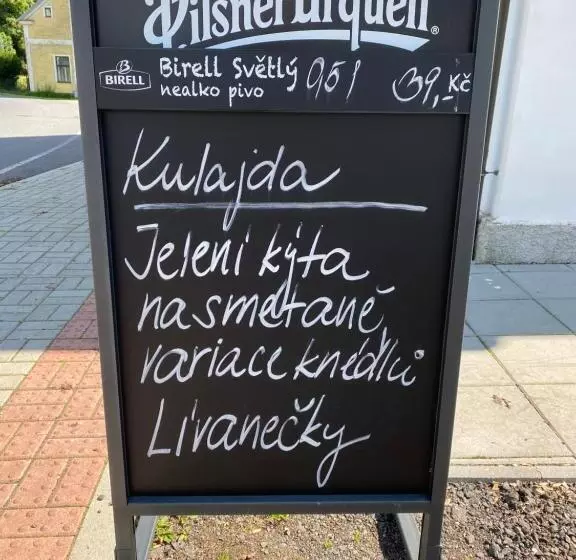 Pilsner Urquell®
B
BIRELL
Birell Světlý 0,5 l 39,- Kč
nealko pivo
Kulajda
Jelení kýta
na smetaně,
variace knedlíků
Lívanečky